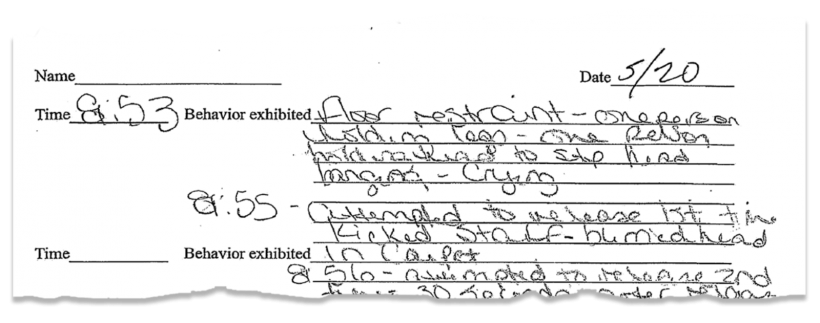 Name Date 5/20
Time 8:53 Behavior exhibited floor restraint - one person
holding legs - one person
holding head to stop head
banging - Crying
8:55 - Attempted to release 1st time
Kicked Staff - head
Time Behavior exhibited in Carpet
8:56 - attempted to release 2nd
30 seconds after release